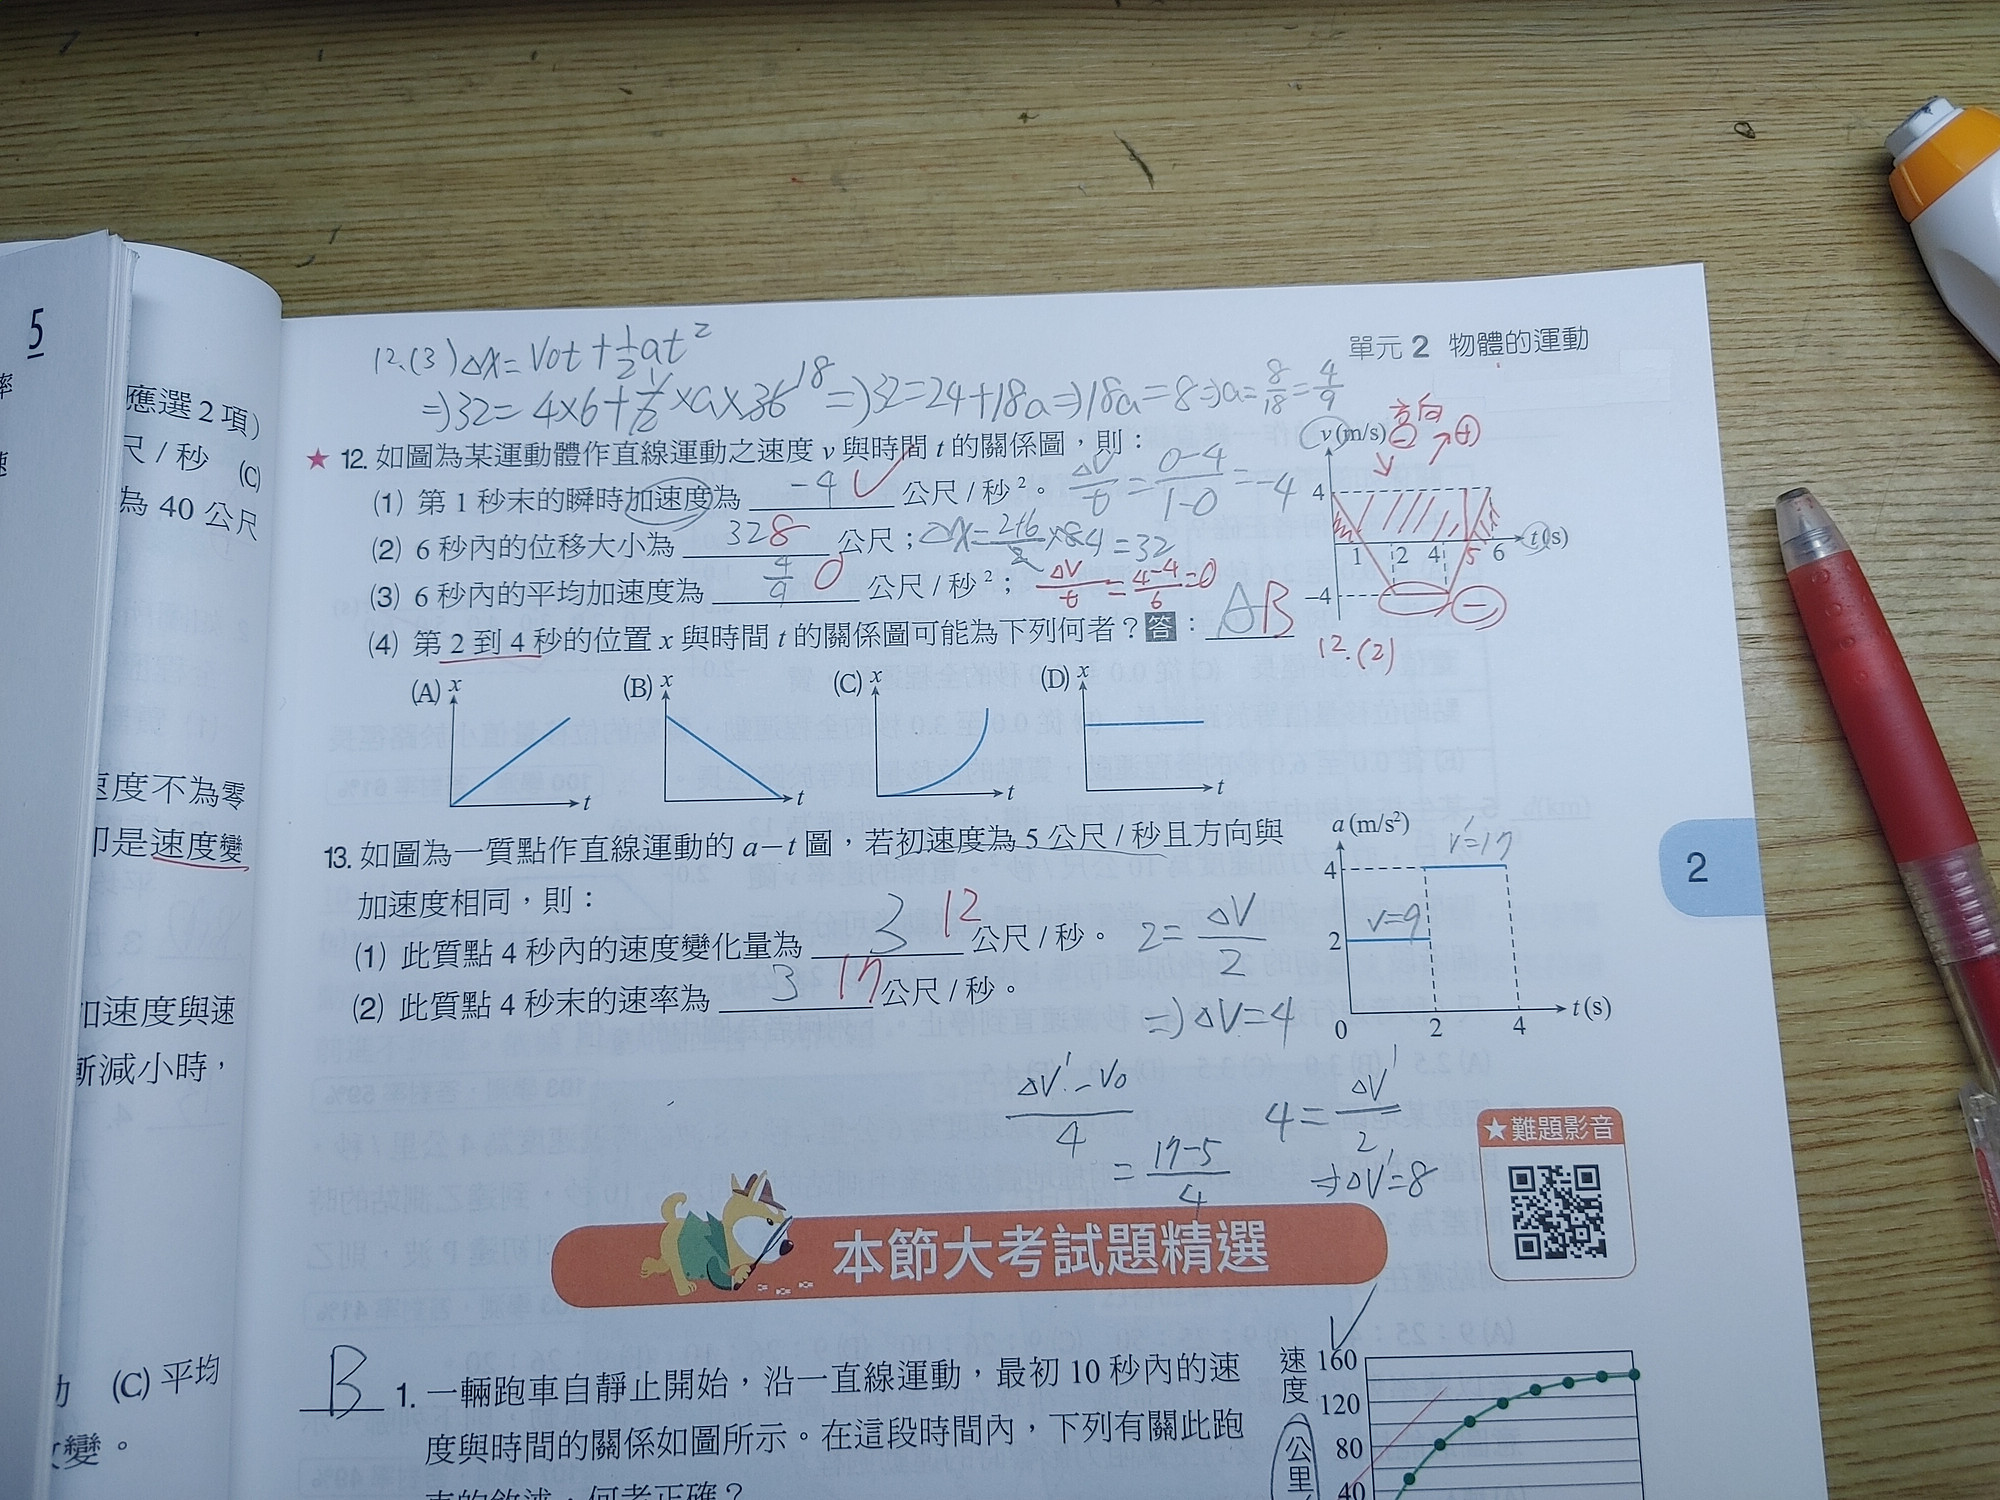 5
應選2項)
尺/秒 (C)
為40公尺
速度不為零
即是速度變
加速度與速
漸減小時,
(C)平均
變。
單元2 物體的運動
12.(3) Δx=V₀t+½at²
⇒32=4×6+½×a×36 18 ⇒32=24+18a⇒18a=8⇒a=8/18=4/9
★ 12. 如圖為某運動體作直線運動之速度 v 與時間 t 的關係圖,則:
(1) 第 1 秒末的瞬時加速度為 -4 ✓ 公尺/秒²。 ΔV/t = 0-4/1-0 = -4
(2) 6 秒內的位移大小為 32 8 公尺; Δx=2+6/2×84=32
(3) 6 秒內的平均加速度為 4/9 0 公尺/秒²; ΔV/t = 4-4/6=0
(4) 第 2 到 4 秒的位置 x 與時間 t 的關係圖可能為下列何者?答: A B
v(m/s) 方向 ⊖ ⊕
4
1 2 4 5 6 t(s)
-4 ⊖
12.(2)
(A) x t
(B) x t
(C) x t
(D) x t
13. 如圖為一質點作直線運動的 a-t 圖,若初速度為 5 公尺/秒且方向與
加速度相同,則:
(1) 此質點 4 秒內的速度變化量為 3 12 公尺/秒。 2=ΔV/2
(2) 此質點 4 秒末的速率為 3 17 公尺/秒。
⇒ΔV=4
a(m/s²)
V'=17
4
V=9
2
0 2 4 t(s)
ΔV'-V₀/4
=17-5/4
4=ΔV'/2
⇒ΔV'=8
2
★難題影音
本節大考試題精選
B 1. 一輛跑車自靜止開始,沿一直線運動,最初 10 秒內的速
度與時間的關係如圖所示。在這段時間內,下列有關此跑
車的敘述,何者正確?
速度(公里/
160
120
80
40